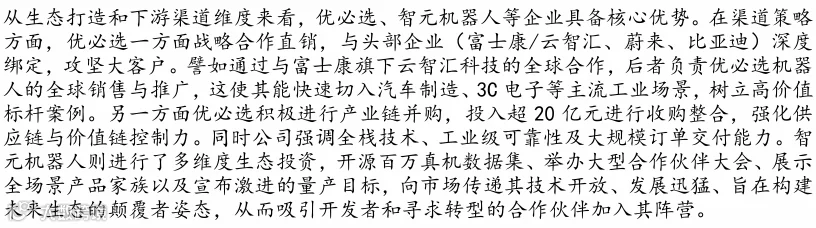 从生态打造和下游渠道维度来看，优必选、智元机器人等企业具备核心优势。在渠道策略
方面，优必选一方面战略合作直销，与头部企业（富士康/云智汇、蔚来、比亚迪）深度
绑定，攻坚大客户。譬如通过与富士康旗下云智汇科技的全球合作，后者负责优必选机器
人的全球销售与推广，这使其能快速切入汽车制造、3C 电子等主流工业场景，树立高价值
标杆案例。另一方面优必选积极进行产业链并购，投入超 20 亿元进行收购整合，强化供
应链与价值链控制力。同时公司强调全栈技术、工业级可靠性及大规模订单交付能力。智
元机器人则进行了多维度生态投资，开源百万真机数据集、举办大型合作伙伴大会、展示
全场景产品家族以及宣布激进的量产目标，向市场传递其技术开放、发展迅猛、旨在构建
未来生态的颠覆者姿态，从而吸引开发者和寻求转型的合作伙伴加入其阵营。